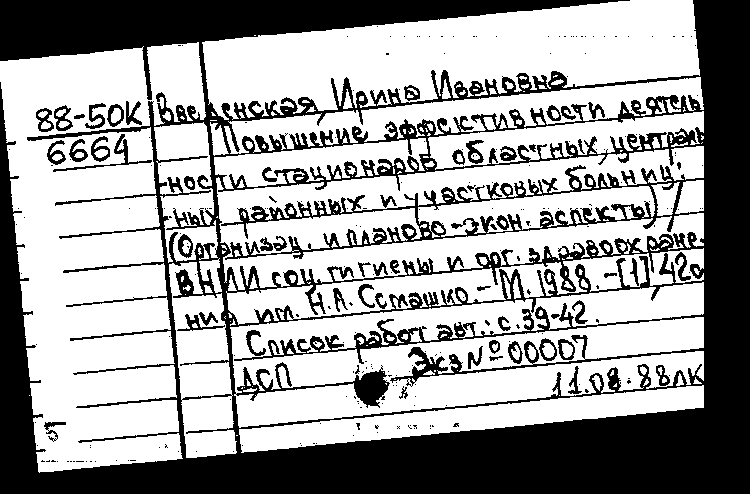 88-50К
6664
Введенская, Ирина Ивановна.
Повышение эффективности деятель
-ности стационаров областных, централь
-ных районных и участковых больниц:
(Организац. и планово-экон. аспекты) /
ВНИИ соц. гигиены и орг. здравоохране-
ния им. Н.А. Семашко. - М., 1988. - [1], 42с
Список работ авт.: с. 39-42.
ДСП Экз № 00007
11.08.88лк
5